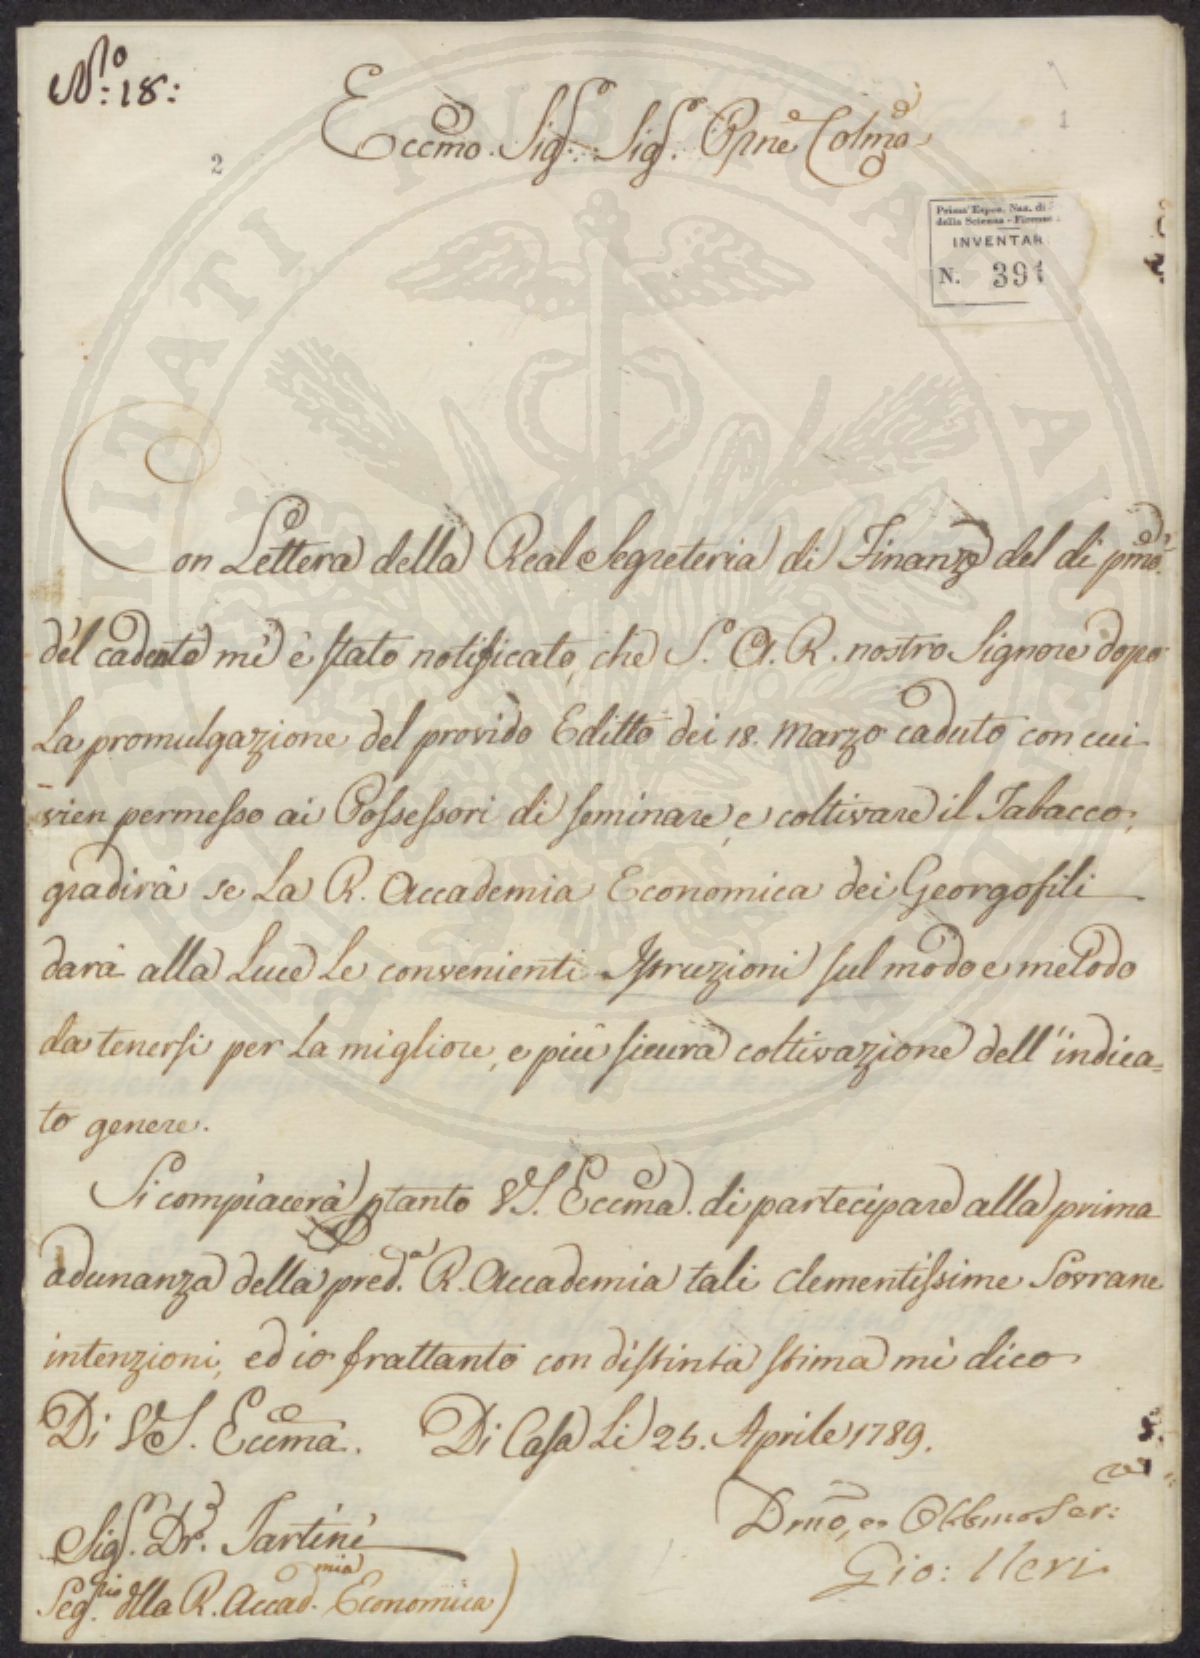 N.º: 18:
Eccmo. Sigr. Sigr. Prne Colmo.
2
1
Prima Espos. Naz. di
della Scienza - Firenze
INVENTAR
N. 391
Con Lettera della Real Segreteria di Finanze del di pmo.
del cadente mi è stato notificato, che S. A. R. nostro Signore dopo
La promulgazione del provido Editto dei 18. Marzo caduto con cui
vien permesso ai Possessori di seminare, e coltivare il Tabacco,
gradirà se La R. Accademia Economica dei Georgofili
darà alla Luce Le convenienti Istruzioni sul modo e metodo
da tenersi per La migliore, e più sicura coltivazione dell'indica=
to genere.
Si compiacerà ptanto VS. Eccma. di partecipare alla prima
adunanza della pred.ª R. Accademia tali clementissime Sovrane
intenzioni, ed io frattanto con distinta stima mi dico
Di VS. Eccma. Di Casa Li 25. Aprile 1789.
Sigr. Dr. Tartini
Segrio dlla R. Accad.mia Economica
Dmo, e Obbmo Ser:
Gio: Neri